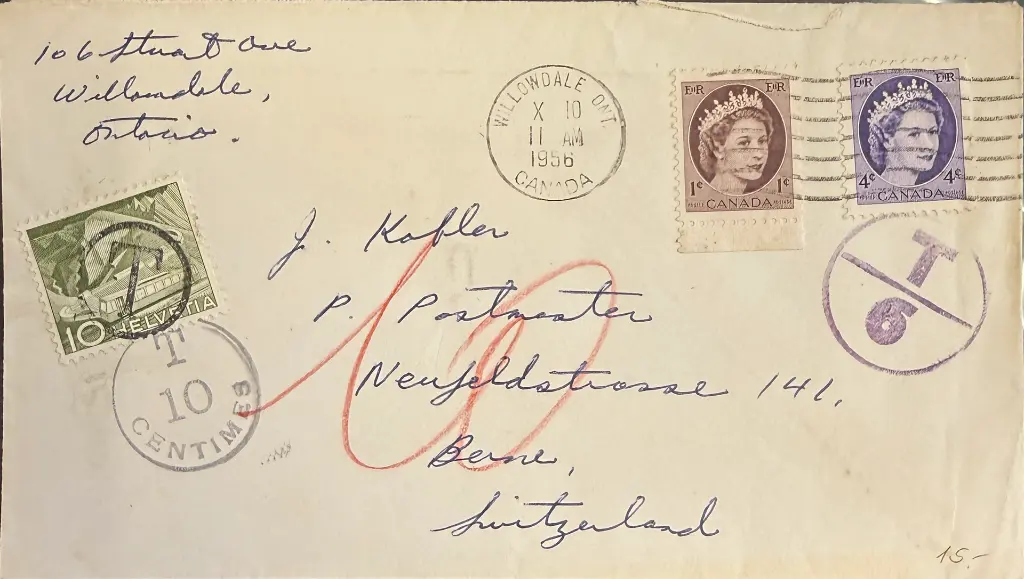 106 Stuart Ave
Willowdale,
Ontario.
WILLOWDALE ONT.
X 10
11 AM
1956
CANADA
E II R E II R
1¢ 1¢
POSTES CANADA POSTAGE
E II R E II R
4¢ 4¢
POSTES CANADA POSTAGE
T
6
T
10 HELVETIA
T
10
CENTIMES
10
J. Kobler
P. Postmaster
Neufeldstrasse 141.
Berne,
Switzerland
15.-